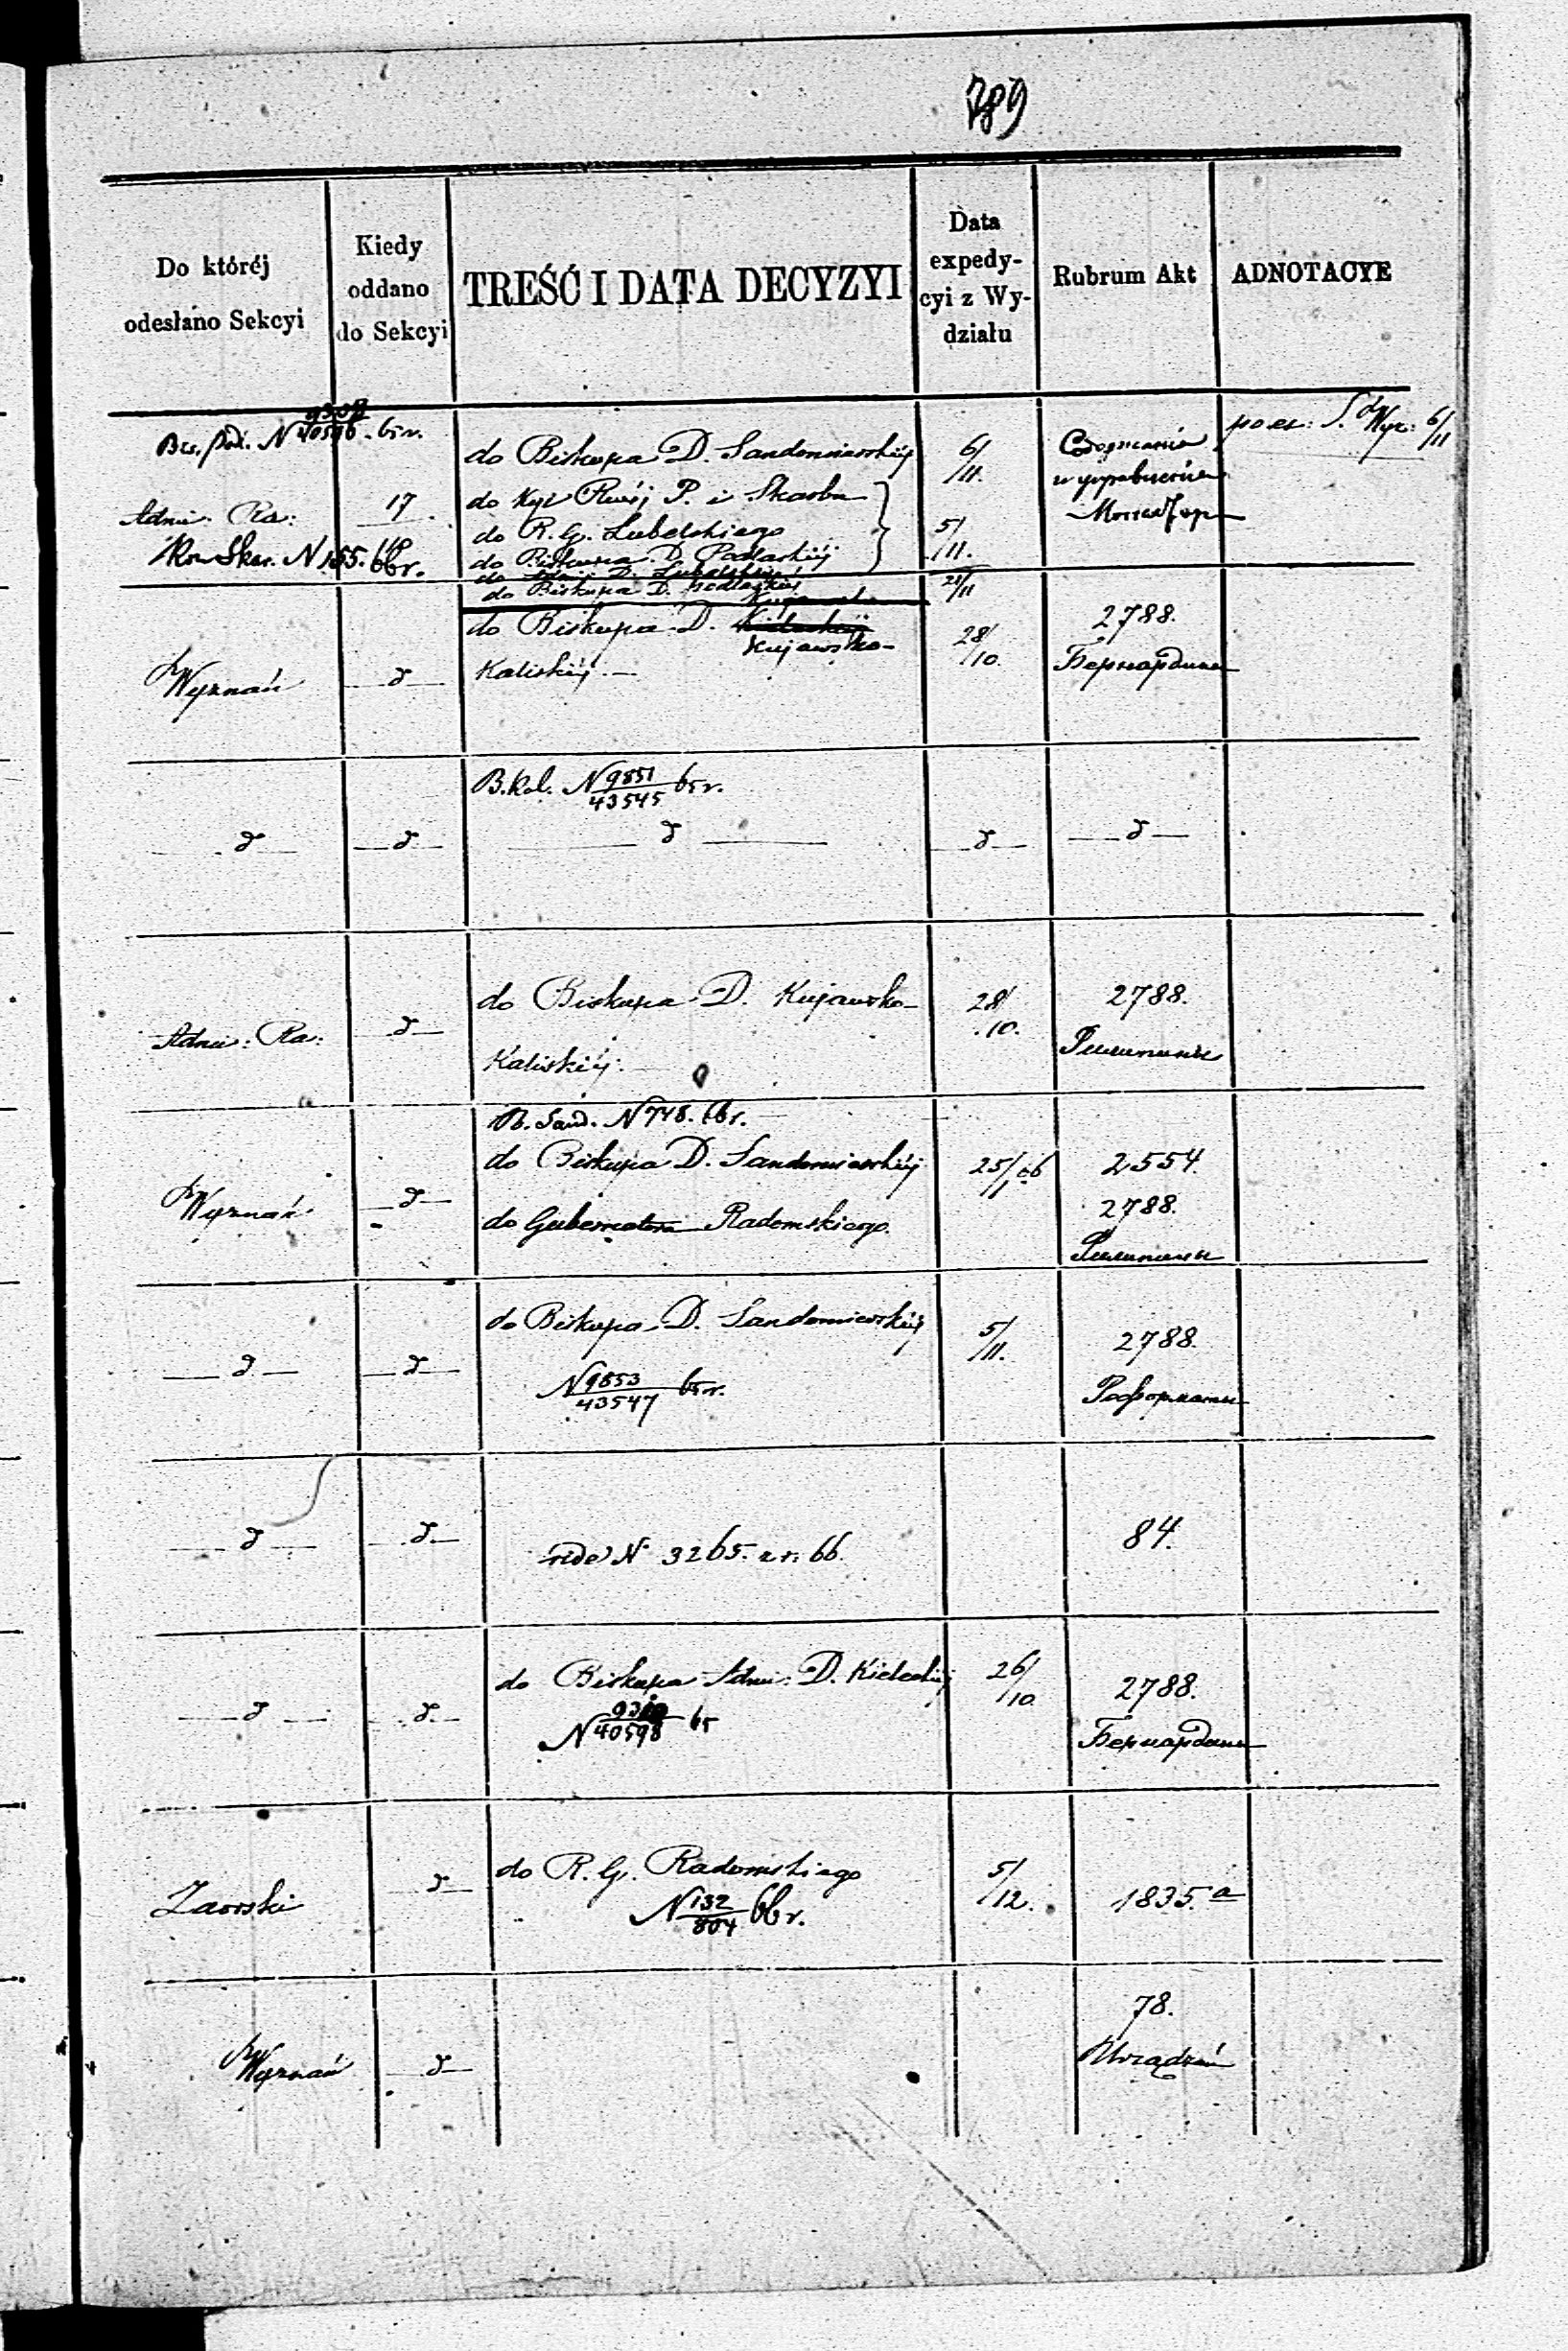 789
Do któréj
odesłano Sekcyi
Kiedy
oddano
do Sekcyi
TREŚĆ I DATA DECYZYI
Data
expedy-
cyi z Wy-
działu
Rubrum Akt
ADNOTACYE
N 9308/40596 65 r.
Adm: Ra:
Skar. N 155. 66 r.
17
do Biskupa D. Sandomierskiéj
do P. i Skarbu
do R. G. Lubelskiego
do Biskupa D. Podlaskiéj
do Adm: D. Lubelskiéj
do Biskupa D. Podlaskiéj
6/11.
5/11.
21/11
6/11
Wyznań
d
do Biskupa D. Kieleckiéj
Kujawsko-
Kaliskiéj.
28/10.
2788.
Бернардины
d
d
B. Kal. N 9851/43545 65 r.
d
d
d
Adm: Ra:
d
do Biskupa D. Kujawsko-
Kaliskiéj.
28/10.
2788.
Wyznań
d
B. Sand. N 748. 66 r.
do Biskupa D. Sandomierskiéj
do Gubernatora Radomskiego.
25/1 66
2554.
2788.
d
d
do Biskupa D. Sandomierskiéj
N 9853/43547 65 r.
5/11.
2788.
Реформаты
d
d
vide N 3265. z r. 66.
84.
d
d
do Biskupa Adm: D. Kieleckiéj
N 9310/40598 65
26/10
2788.
Бернардины
Zaorski
d
do R. G. Radomskiego
N 132/804 66 r.
5/12.
1835. a
Wyznań
d
78.
Urządzeń